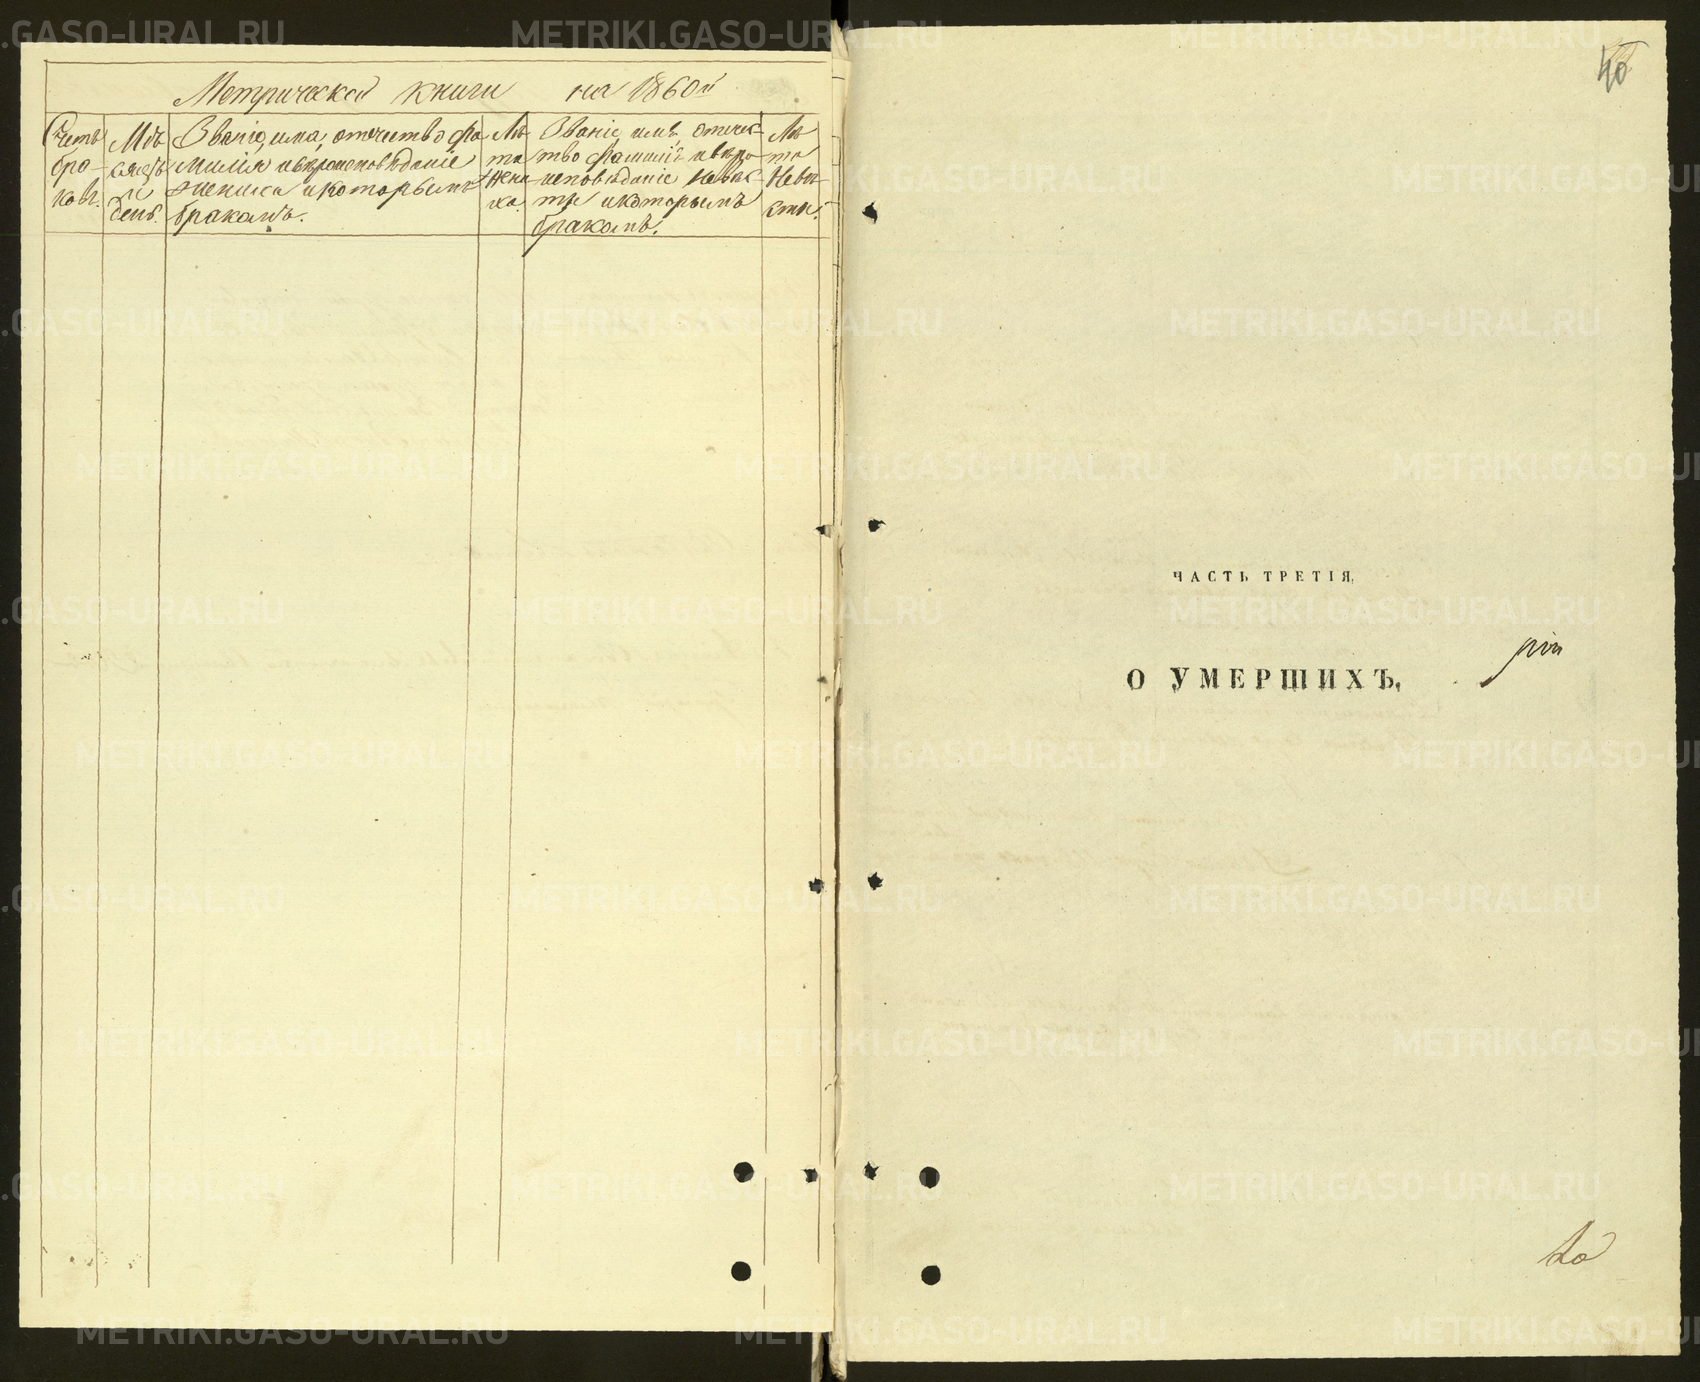 Метрической книги на 1860й
Счетъ
бра-
ковъ.
Мѣ-
сяцъ
и
день.
Званіе, имя, отчество фа-
милія и вѣроисповѣданіе
жениха и которымъ
бракомъ.
Лѣ-
та
жени-
ха.
Званіе, имя, отчес-
тво фамилія и вѣро-
исповѣданіе невѣс-
ты и которымъ
бракомъ.
Лѣ-
та
Невѣ-
сты.
40
ЧАСТЬ ТРЕТІЯ,
О УМЕРШИХЪ,
METRIKI.GASO-URAL.RU